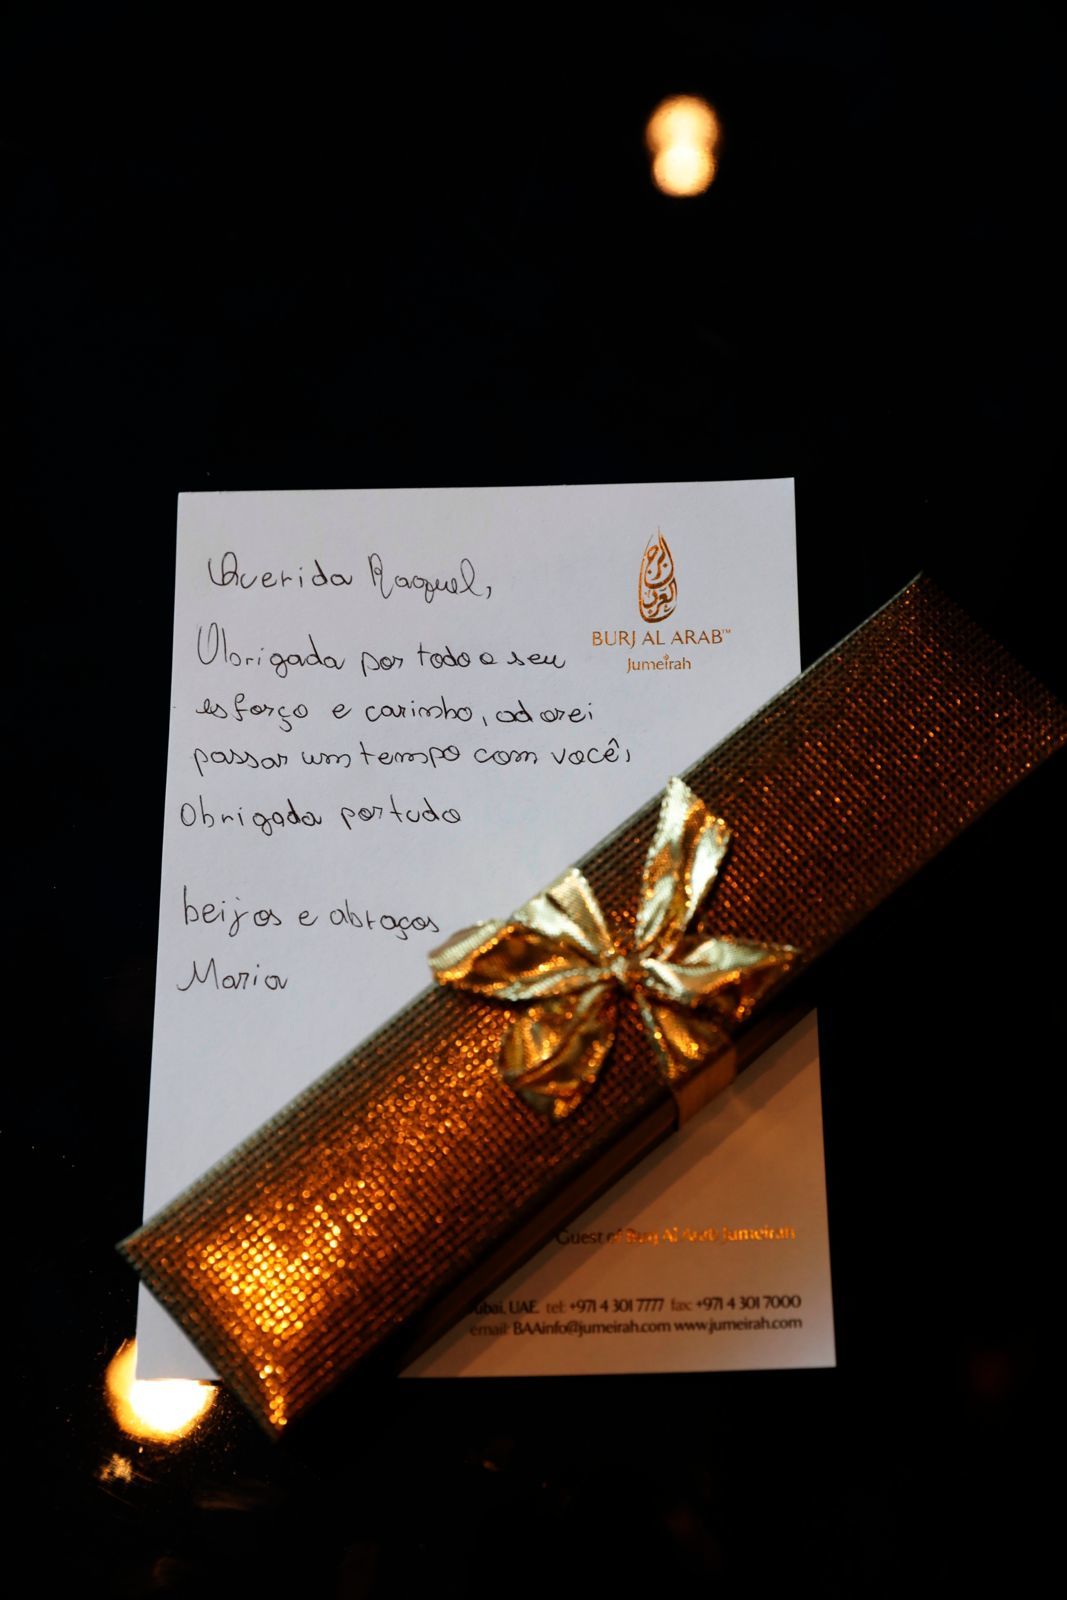 Querida Raquel,
Obrigada por todo o seu
esforço e carinho, adorei
passar um tempo com você,
Obrigada por tudo
beijos e abraços
Maria
البرج
العرب
BURJ AL ARAB™
Jumeirah
Guest of Burj Al Arab Jumeirah
ubai, UAE. tel: +971 4 301 7777 fax: +971 4 301 7000
email: BAAinfo@jumeirah.com www.jumeirah.com